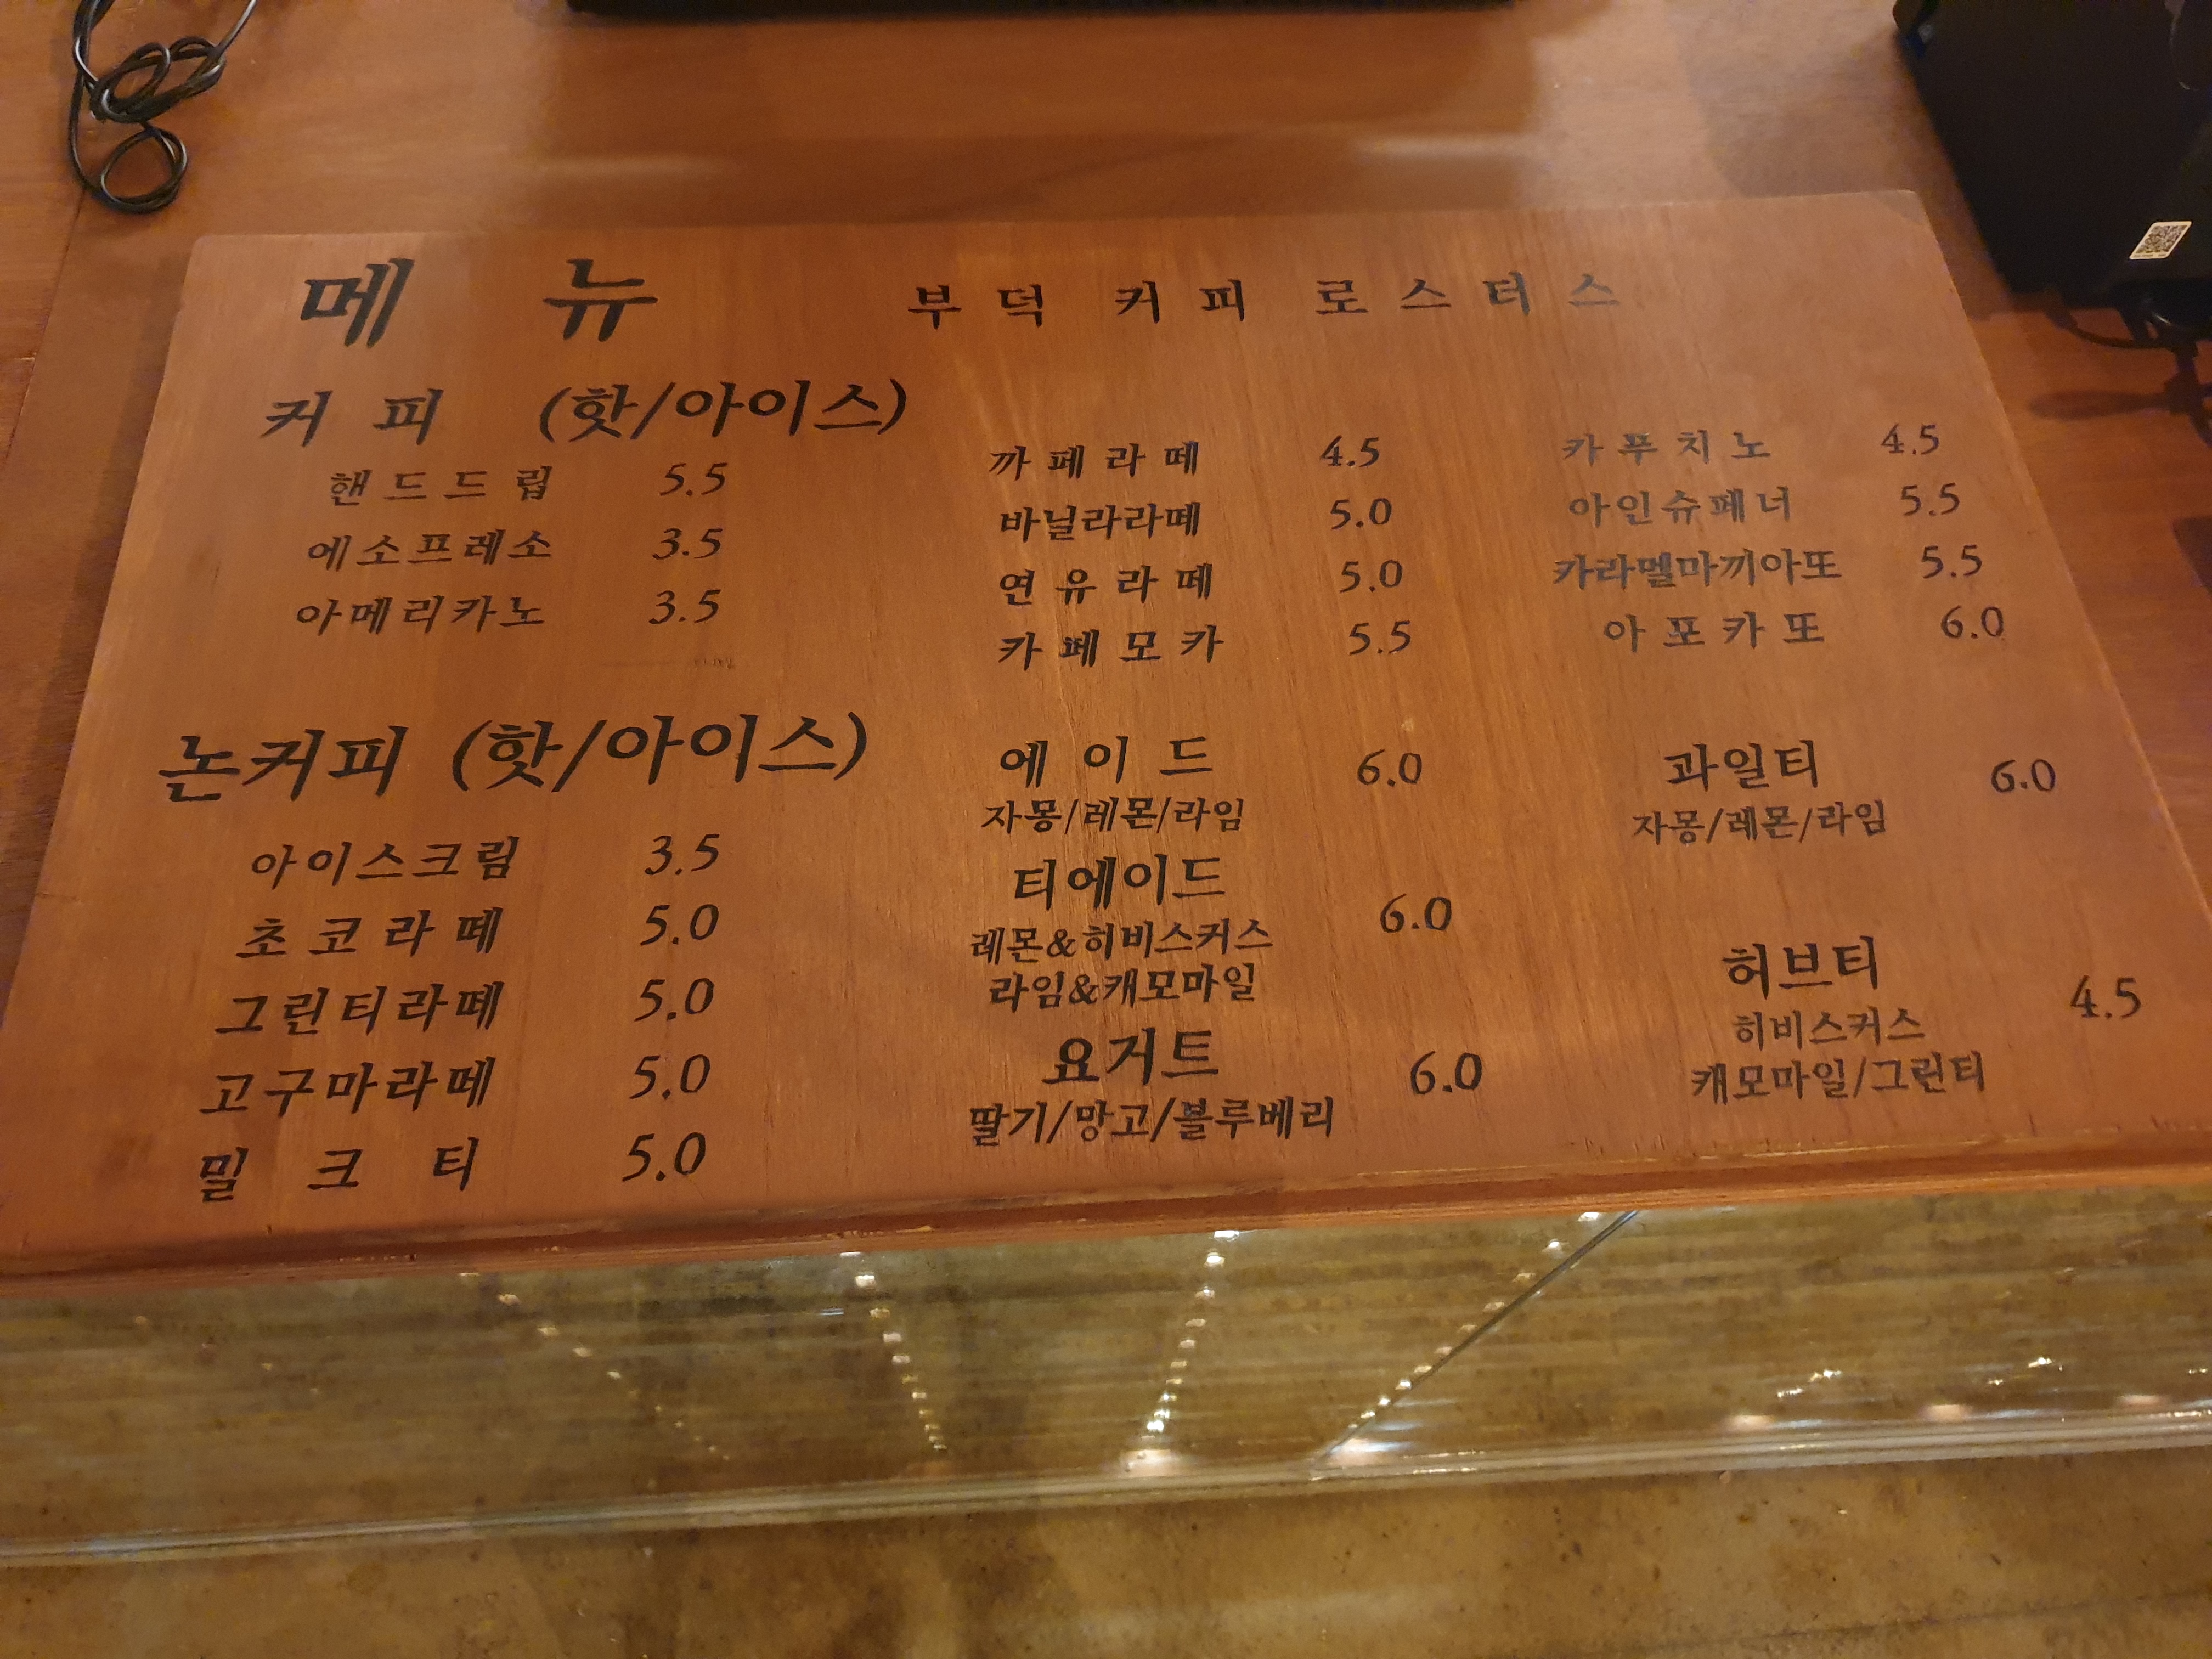 메 뉴
부덕 커피 로스터스
커 피 (핫/아이스)
핸드드립 5.5
에소프레소 3.5
아메리카노 3.5
까페라떼 4.5
바닐라라떼 5.0
연유라떼 5.0
카페모카 5.5
카푸치노 4.5
아인슈페너 5.5
카라멜마끼아또 5.5
아포카또 6.0
논커피 (핫/아이스)
아이스크림 3.5
초코라떼 5.0
그린티라떼 5.0
고구마라떼 5.0
밀크티 5.0
에이드 6.0
자몽/레몬/라임
티에이드 6.0
레몬&히비스커스
라임&캐모마일
요거트 6.0
딸기/망고/블루베리
과일티 6.0
자몽/레몬/라임
허브티 4.5
히비스커스
캐모마일/그린티